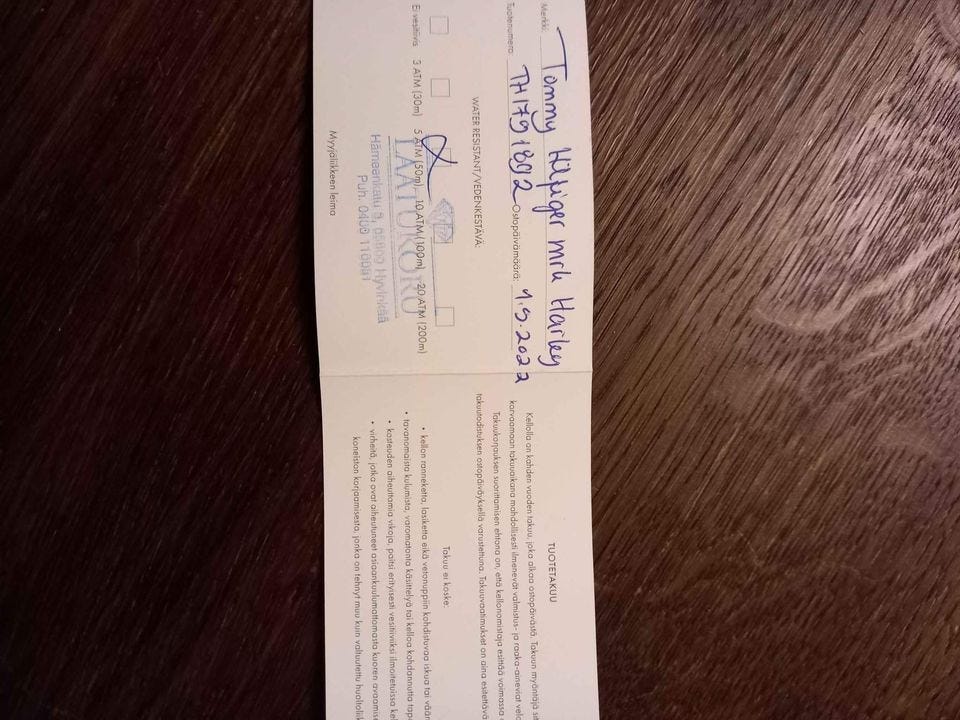 Merkki: Tommy Hilfiger mrk Harley
Tuotenumero: TH1791892 Ostopäivämäärä: 1.9.2022
WATER RESISTANT/VEDENKESTÄVÄ:
Ei vesitiivis 3 ATM (30m) 5 ATM (50m) 10 ATM (100m) 20 ATM (200m)
LAATUKORU
Hämeenkatu 9, 05800 Hyvinkää
Puh. 0400 110081
Myyjäliikkeen leima
TUOTETAKUU
Kellolla on kahden vuoden takuu, joka alkaa ostopäivästä. Takuun myöntäjä
korvaamaan takuuaikana mahdollisesti ilmenevät valmistus- ja raaka-aineviat
Takuukorjauksen suorittamisen ehtona on, että kellonomistaja esittää voimassa
takuutodistuksen ostopäiväyksellä varustettuna. Takuuvaatimukset on aina esitettävä
Takuu ei koske:
• kellon ranneketta, lasiketta eikä vetonuppiin kohdistuvaa iskua tai
• tavanomaista kulumista, varomatonta käsittelyä tai kelloa kohdannutta
• kosteuden aiheuttamia vikoja, paitsi erityisesti vesitiiviiksi ilmoitetuissa
• virheitä, jotka ovat aiheutuneet asiaankuulumattomasta kuoren
koneiston korjaamisesta, jonka on tehnyt muu kuin valtuutettu